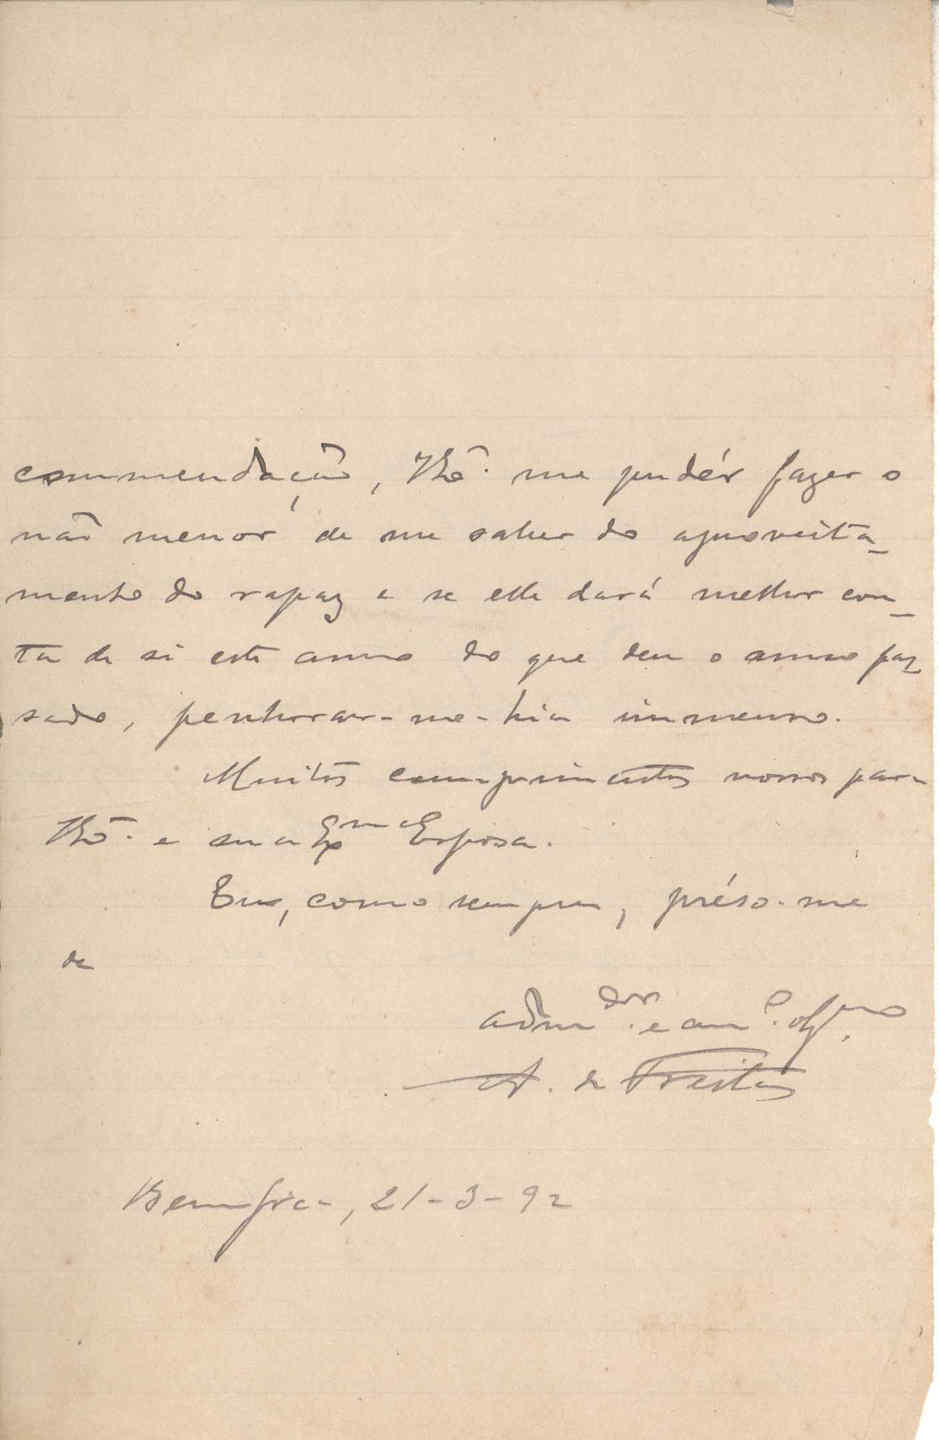 commendação, V.Exª. me pudér fazer o
não menor de me saber do aproveita-
mento do rapaz e se elle dará melhor con-
ta de si este anno do que deu o anno pas-
sado, penhorar-me-hia immenso.
Muitos comprimentos nossos para
V.Exª. e sua Exma Esposa.
Eu, como sempre, préso-me
de
admdor. e amº. obgmo.
A. de Freitas
Bemfica, 21-3-92